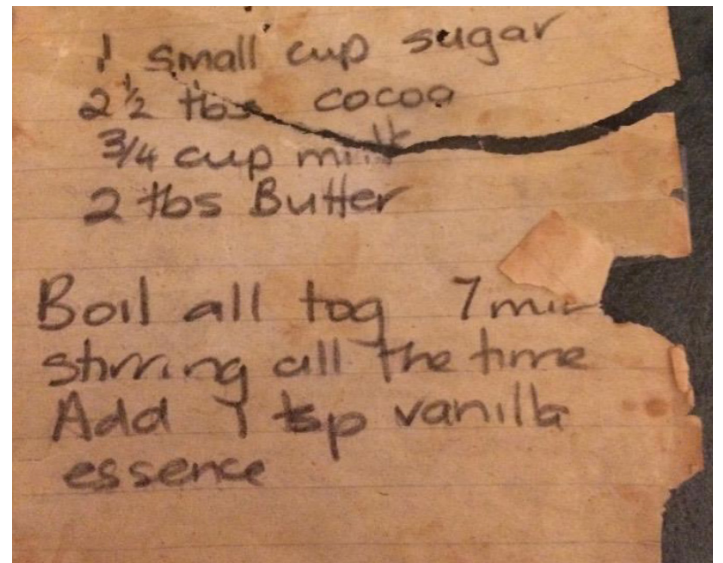 1 small cup sugar
2 ½ tbs cocoa
3/4 cup milk
2 tbs Butter
Boil all tog 7 min
stirring all the time
Add 1 tsp vanilla
essence